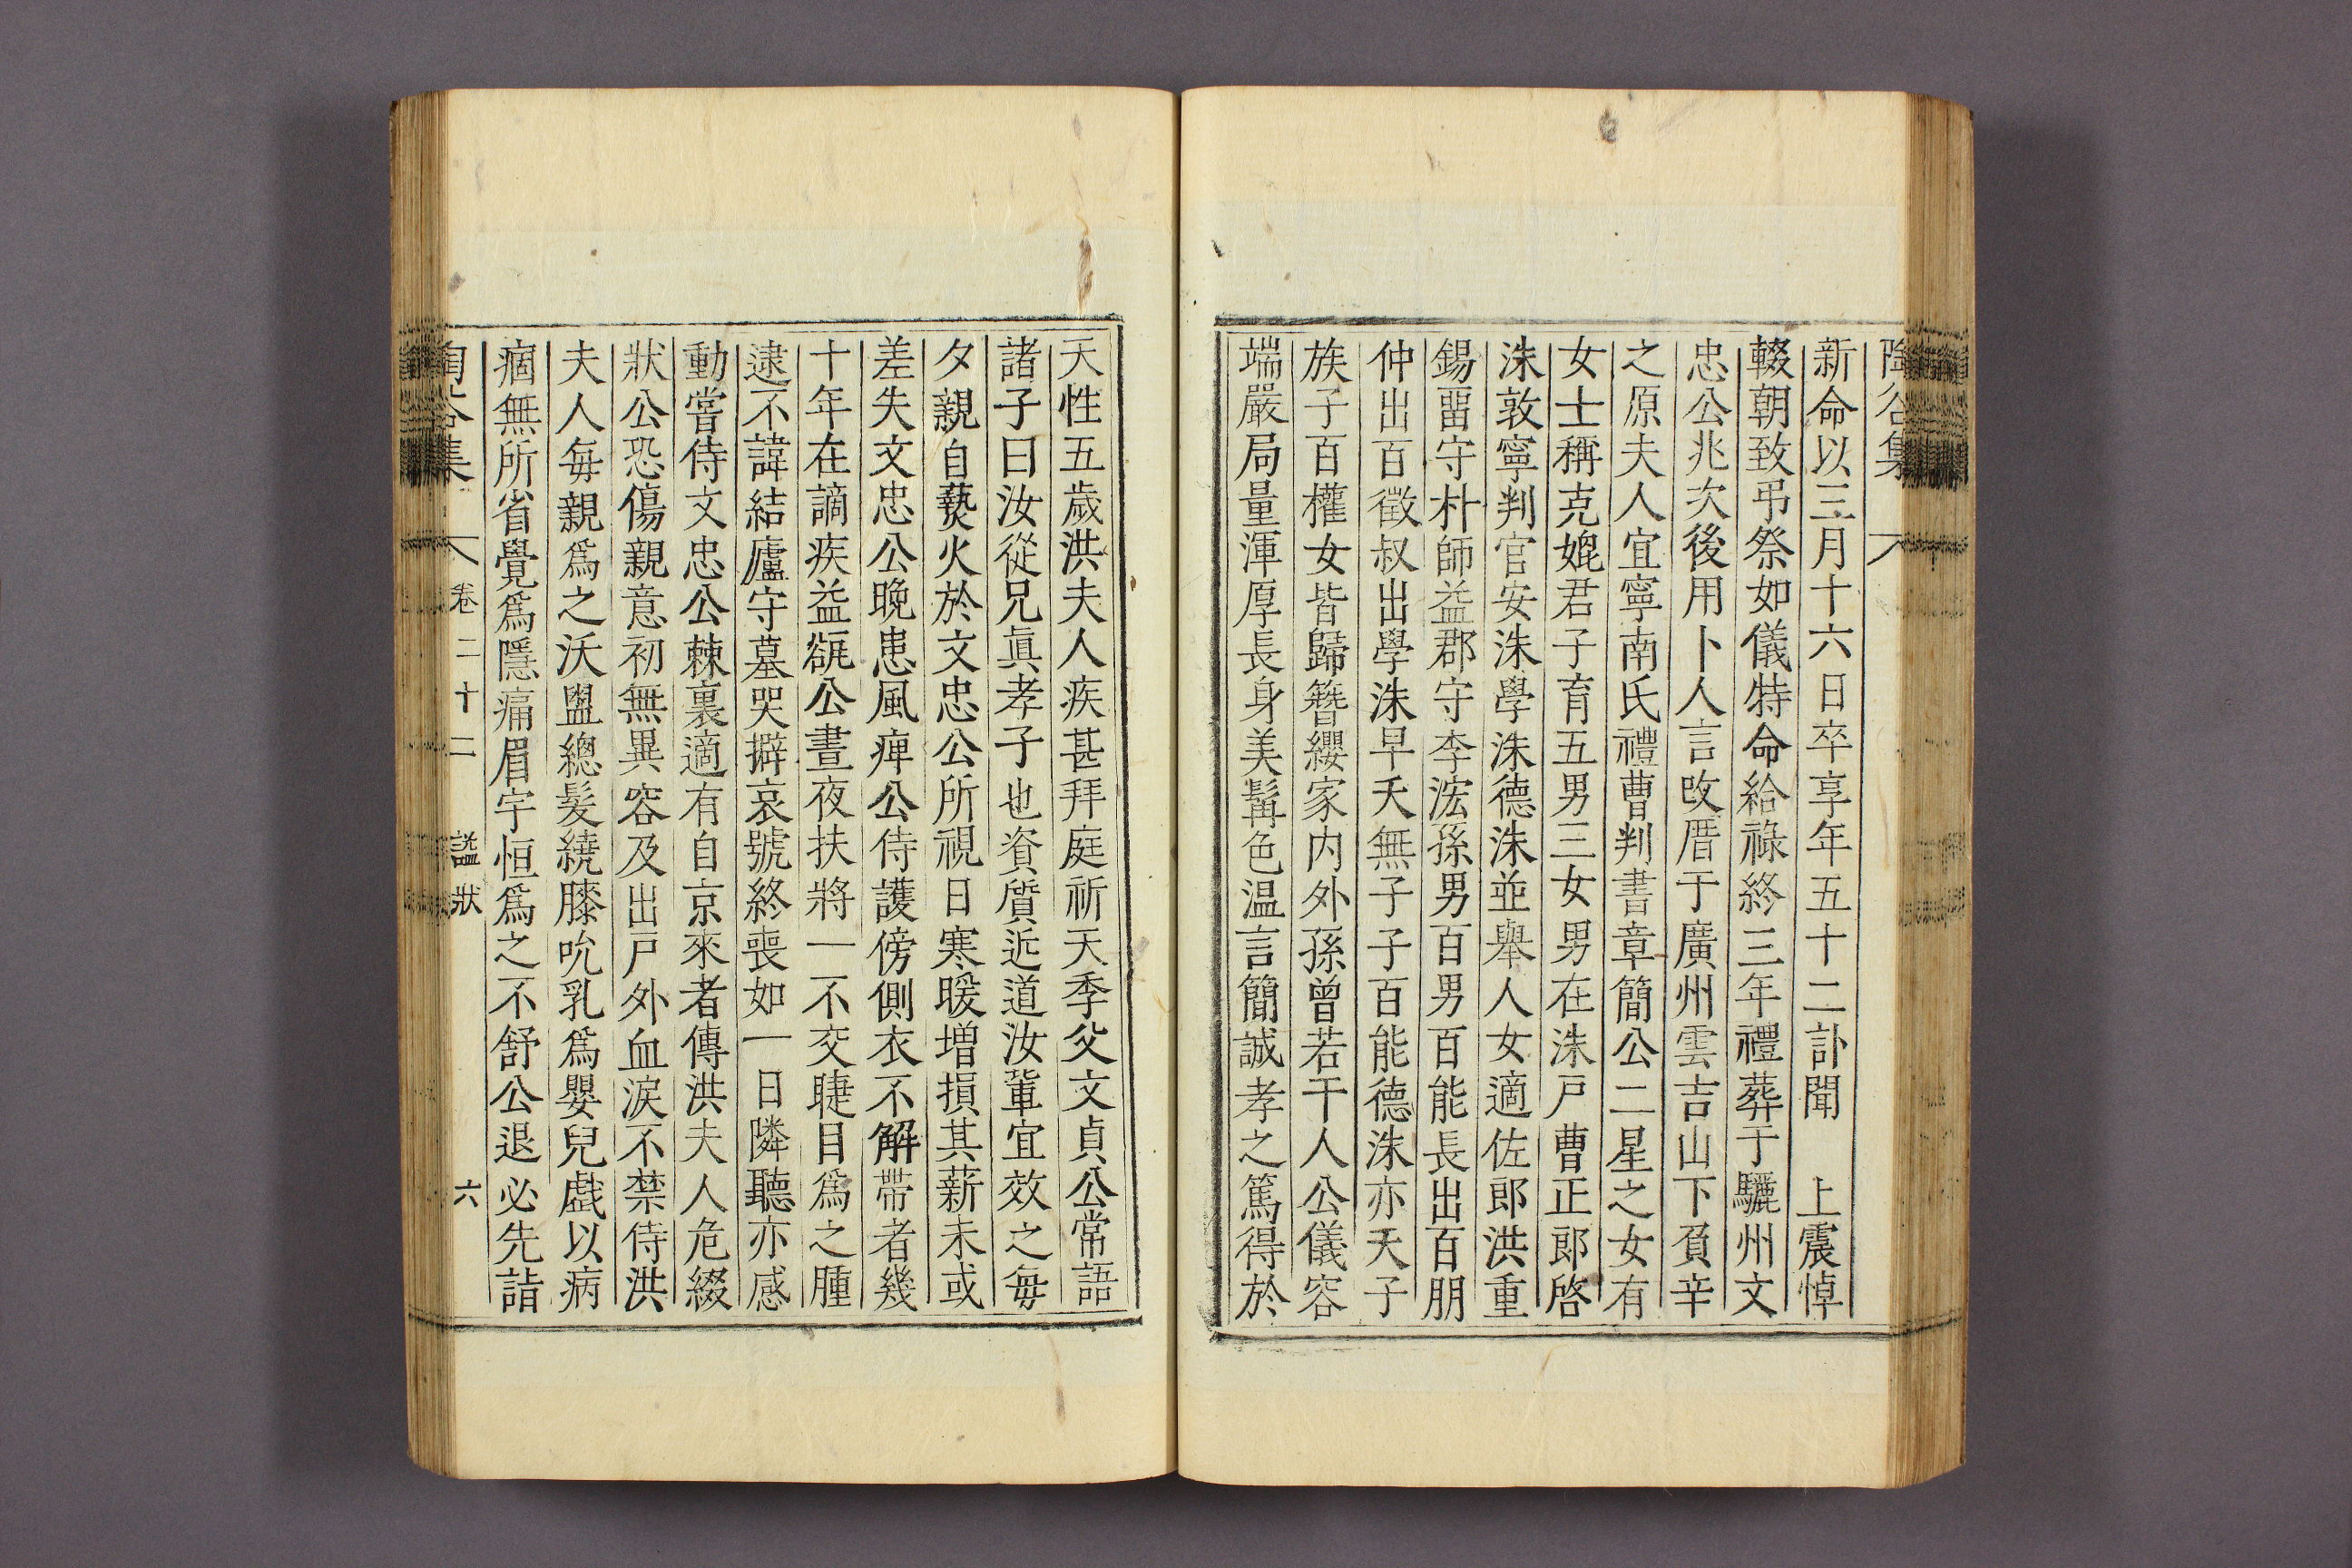 陶谷集
新命以三月十六日卒享年五十二訃聞　上震悼
輟朝致弔祭如儀特命給祿終三年禮葬于驪州文
忠公兆次後用卜人言改厝于廣州雲吉山下負辛
之原夫人宜寧南氏禮曹判書章簡公二星之女有
女士稱克媲君子育五男三女男在洙戶曹正郞啓
洙敦寧判官安洙學洙德洙並擧人女適佐郞洪重
錫畱守朴師益郡守李浤孫男百男百能長出百朋
仲出百徵叔出學洙早夭無子子百能德洙亦夭子
族子百權女皆歸簪纓家內外孫曾若干人公儀容
端嚴局量渾厚長身美髯色温言簡誠孝之篤得於
天性五歲洪夫人疾甚拜庭祈天季父文貞公常語
諸子曰汝從兄眞孝子也資質近道汝軰宜效之每
夕親自爇火於文忠公所視日寒暖增損其薪未或
差失文忠公晩患風痺公侍護傍側衣不解帶者幾
十年在謫疾益㞃公晝夜扶將一不交睫目爲之腫
逮不諱結廬守墓哭擗哀號終喪如一日隣聽亦感
動嘗侍文忠公棘裏適有自京來者傳洪夫人危綴
狀公恐傷親意初無異容及出戶外血淚不禁侍洪
夫人每親爲之沃盥總髮繞膝吮乳爲嬰兒戱以病
痼無所省覺爲隱痛眉宇恒爲之不舒公退必先詣
陶谷集　卷二十二　諡狀　六